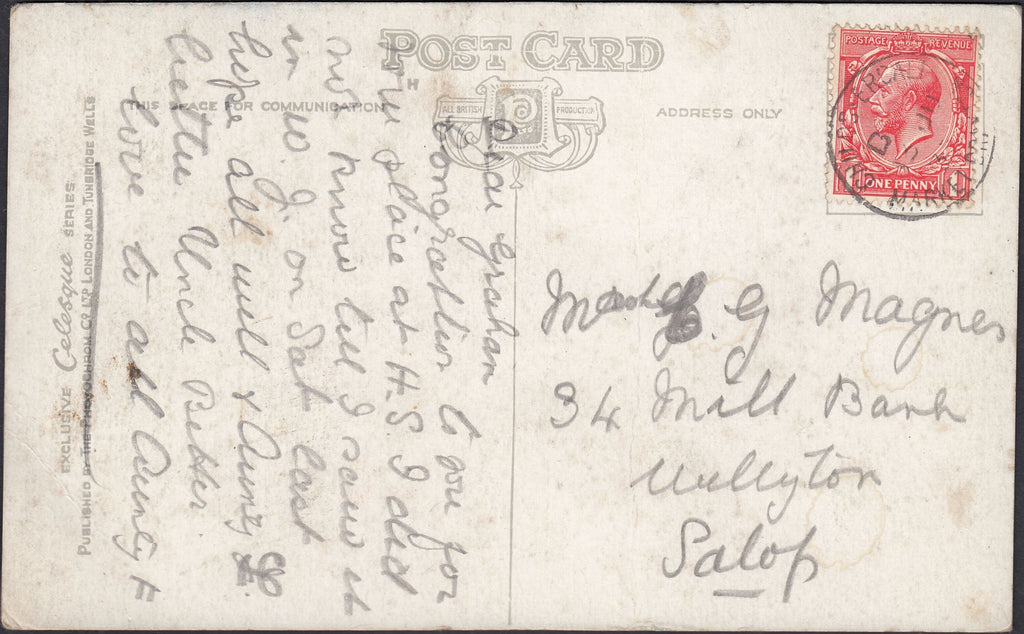 POST CARD
THIS SPACE FOR COMMUNICATION
ADDRESS ONLY
ALL BRITISH
PRODUCTION
POSTAGE REVENUE
ONE PENNY
MARKET
Dear Graham
Congrattion to you for
you place at H.S I did
not know till I saw it
in W. J. on Sat last
hope all well & Aunty
little Uncle Better
love to all Aunty F
Mast G Magnes
34 Mill Bank
Wellyton
Salop
EXCLUSIVE Celesque SERIES
PUBLISHED BY THE PHOTOCHROM CO. LTD LONDON AND TUNBRIDGE WELLS